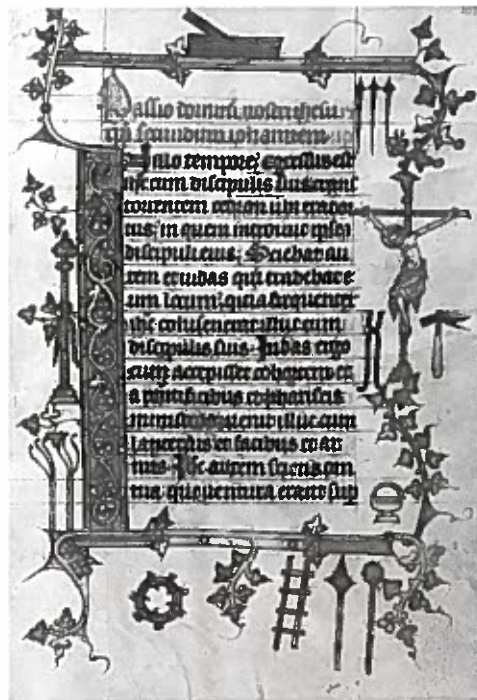 Passio domini nostri ihesu
xpi secundum iohannem
illo tempore egressus est
cum discipulis suis trans
torrentem cedron ubi erat or
tus, in quem introiuit ipse et
discipuli eius. Sciebat au
tem et iudas qui tradebat e
um locum, quia frequenter
ihc conuenerat illuc cum
discipulis suis. Iudas ergo
cum accepisset cohortem et
a pontificibus et phariseis
ministros uenit illuc cum
laternis et facibus et ar
mis. Ihc autem sciens om
nia que uentura erant sup